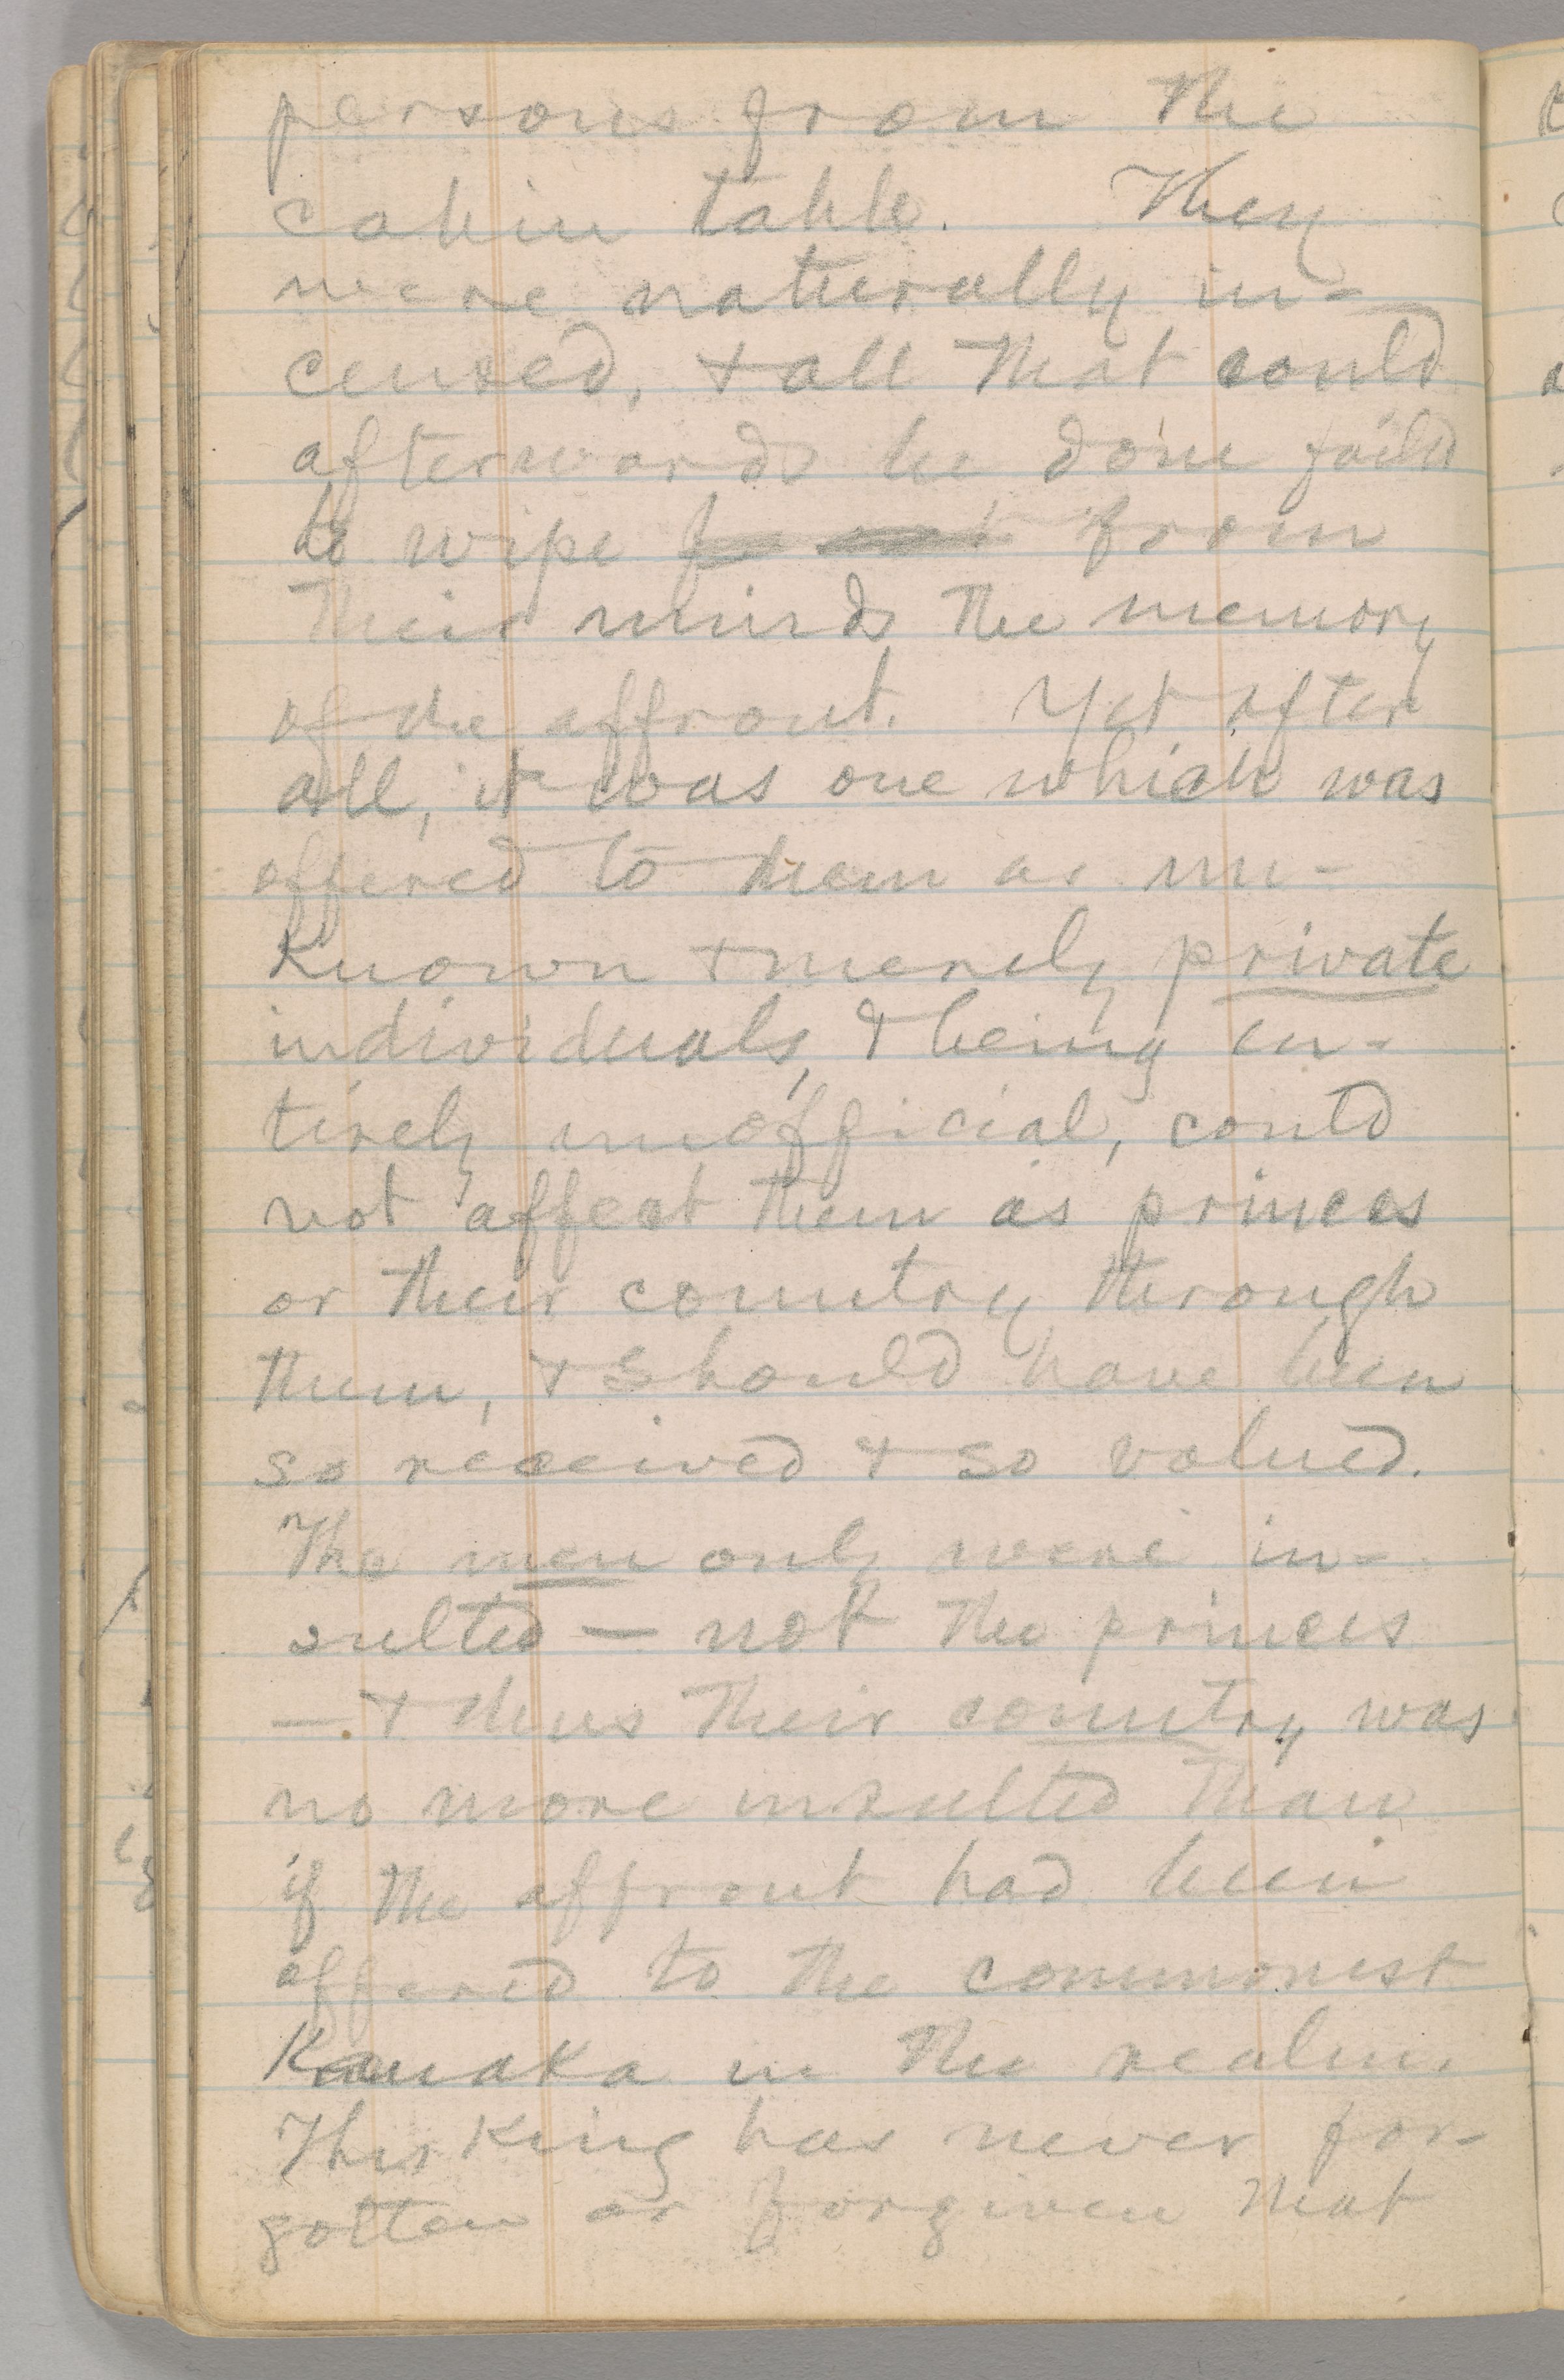 persons from the
cabin table. They
were naturally in-
censed, & all that could
afterwards be done faild
to wipe from
their minds the memory
of the affront. Yet after
all, it was one which was
offered to them as un-
known & merely private
individuals, & being en-
tirely unofficial, could
not affect them as princes
or their country through
them, & should have been
so received & so valued.
The men only were in-
sulted — not the princes
— & thus their country was
no more insulted than
if the affront had been
offered to the commonest
Kanaka in the realm.
This King has never for-
gotten or forgiven that